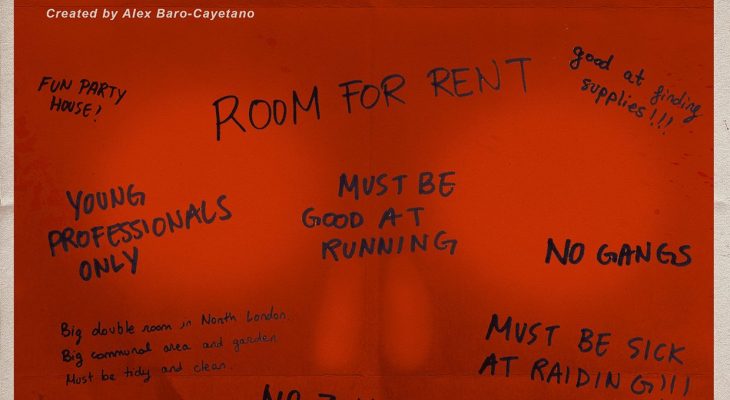 Created by Alex Baro-Cayetano
FUN PARTY
HOUSE!
ROOM FOR RENT
good at finding
supplies!!!
YOUNG
PROFESSIONALS
ONLY
MUST BE
GOOD AT
RUNNING
NO GANGS
Big double room in North London.
Big communal area and garden
Must be tidy and clean.
MUST BE SICK
AT RAIDING!!!
NO